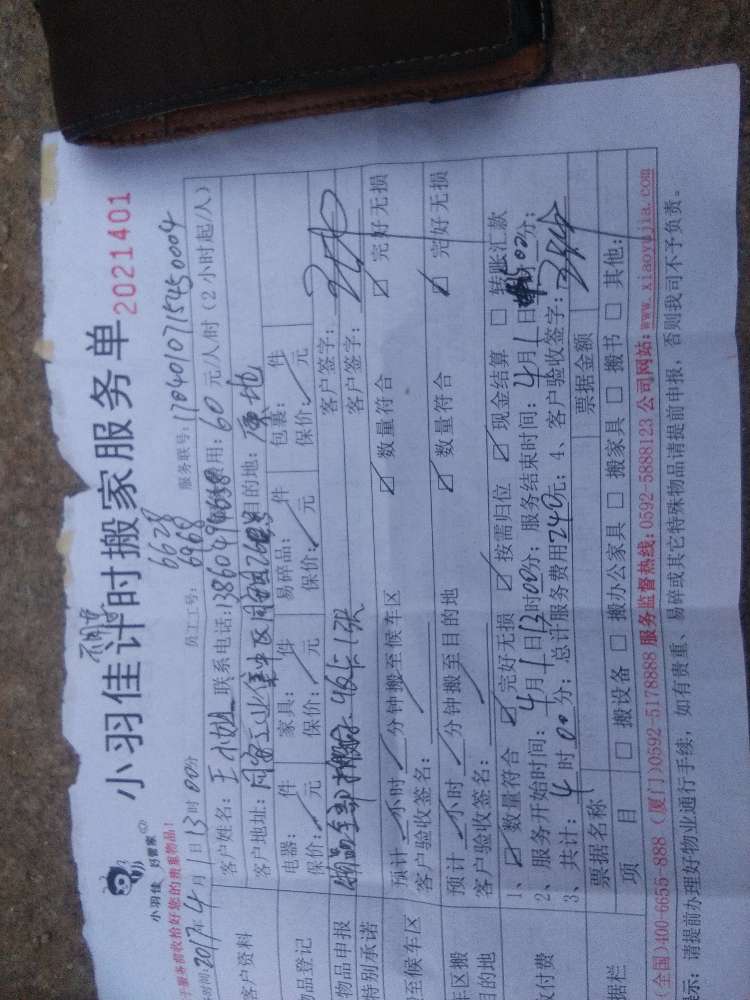 小羽佳计时搬家服务单 2021401
小羽佳 好管家
于服务前收拾好您的贵重物品!
员工工号: 6628 6968 服务联号: 1704010715450004
时间: 2017年4月1日13时00分
费用: 60元/人/时 (2小时起/人)
客户资料 客户姓名: 王小姐 联系电话:
客户地址: 同安工业集中区 目的地: 原地
物品登记 电器: 件 家具: 件 易碎品: 件 包裹: 件
保价: 元 保价: 元 保价: 元 保价: 元
物品申报 客户签字:
特别承诺 客户签字:
至候车区 预计 小时 分钟搬至候车区 ☑ 数量符合 ☑ 完好无损
客户验收签名:
车区搬 预计 小时 分钟搬至目的地 ☑ 数量符合 ☑ 完好无损
目的地 客户验收签名:
1、☑ 数量符合 ☑ 完好无损 ☑ 按需归位 ☑ 现金结算 □ 转账汇款
收付费 2、服务开始时间: 4月1日13时00分; 服务结束时间: 4月1日 00分;
3、共计: 4时00分; 总计服务费用240元; 4、客户验收签字:
票据名称 票据金额
据栏 项目 □ 搬设备 □ 搬办公家具 □ 搬家具 □ 搬书 □ 其他:
全国)400-6655-888 (厦门)0592-5178888 服务监督热线: 0592-5888123 公司网站: www.xiaoyujia.com
示: 请提前办理好物业通行手续, 如有贵重、易碎或其它特殊物品请提前申报, 否则我司不予负责。